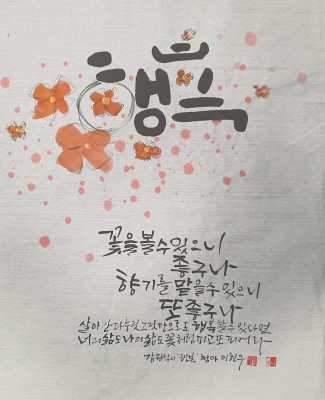 행복
꽃을 볼 수 있으니
좋구나
향기를 맡을 수 있으니
또 좋구나
살아 있다는 그것만으로도 행복할 수 있다면
너의 삶도 나의 삶도 꽃처럼 피고 또 피어라